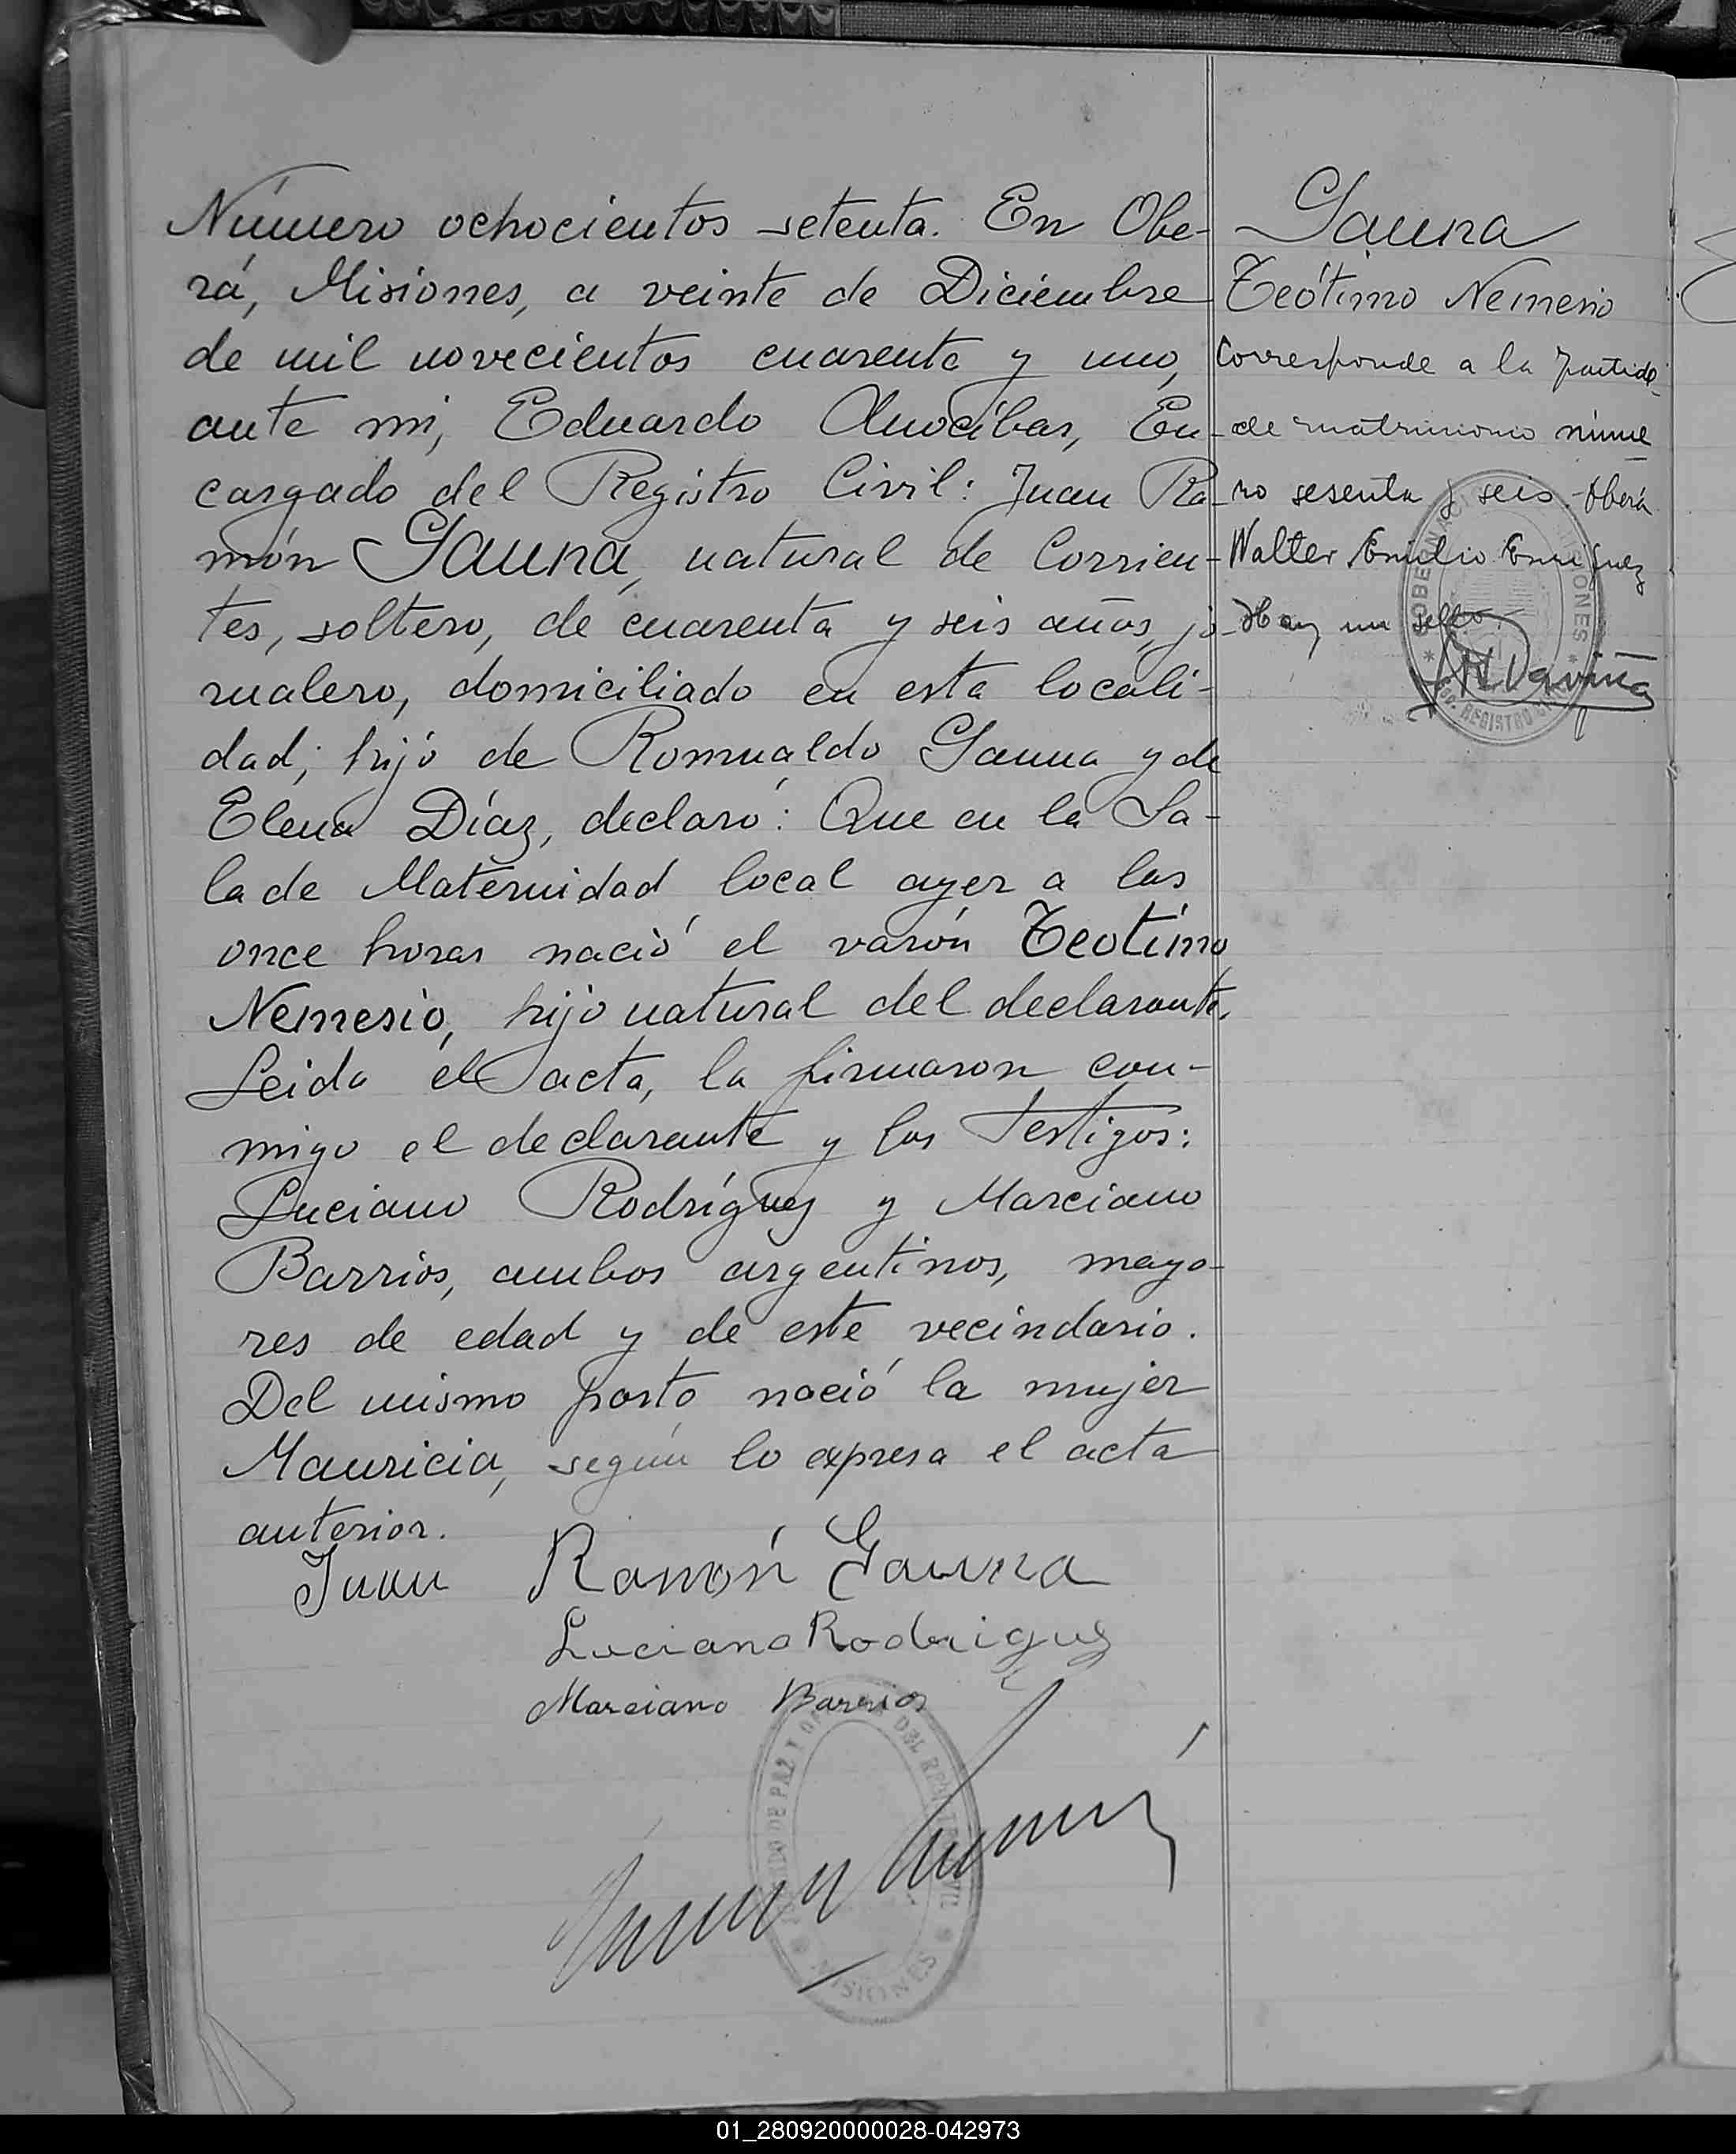 Número ochocientos setenta. En Obe-
rá, Misiones, a veinte de Diciembre
de mil novecientos cuarenta y uno,
ante mi, Eduardo Anocíbar, En-
cargado del Registro Civil: Juan Ra-
món Gauna, natural de Corrien-
tes, soltero, de cuarenta y seis años, jo-
rnalero, domiciliado en esta locali-
dad; hijo de Romualdo Gauna y de
Elena Díaz, declaró: Que en la Sa-
la de Maternidad local ayer a las
once horas nació el varón Teótimo
Nemesio, hijo natural del declarante.
Leida el acta, la firmaron con-
migo el declarante y los testigos:
Luciano Rodríguez y Marciano
Barrios, ambos argentinos, mayo-
res de edad y de este vecindario.
Del mismo parto nació la mujer
Mauricia, según lo expresa el acta
anterior.
Juan Ramón Gauna
Luciano Rodriguez
Marciano Barrios
DE PAZ Y DEL REGISTRO CIVIL
MISIONES
Gauna
Teótimo Nemesio
Corresponde a la partida
de matrimonio núme
ro sesenta y seis. Oberá
Walter Emilio Enriquez
Hay un sello.
GOBERNACI MISIONES
REGISTRO
01_280920000028-042973